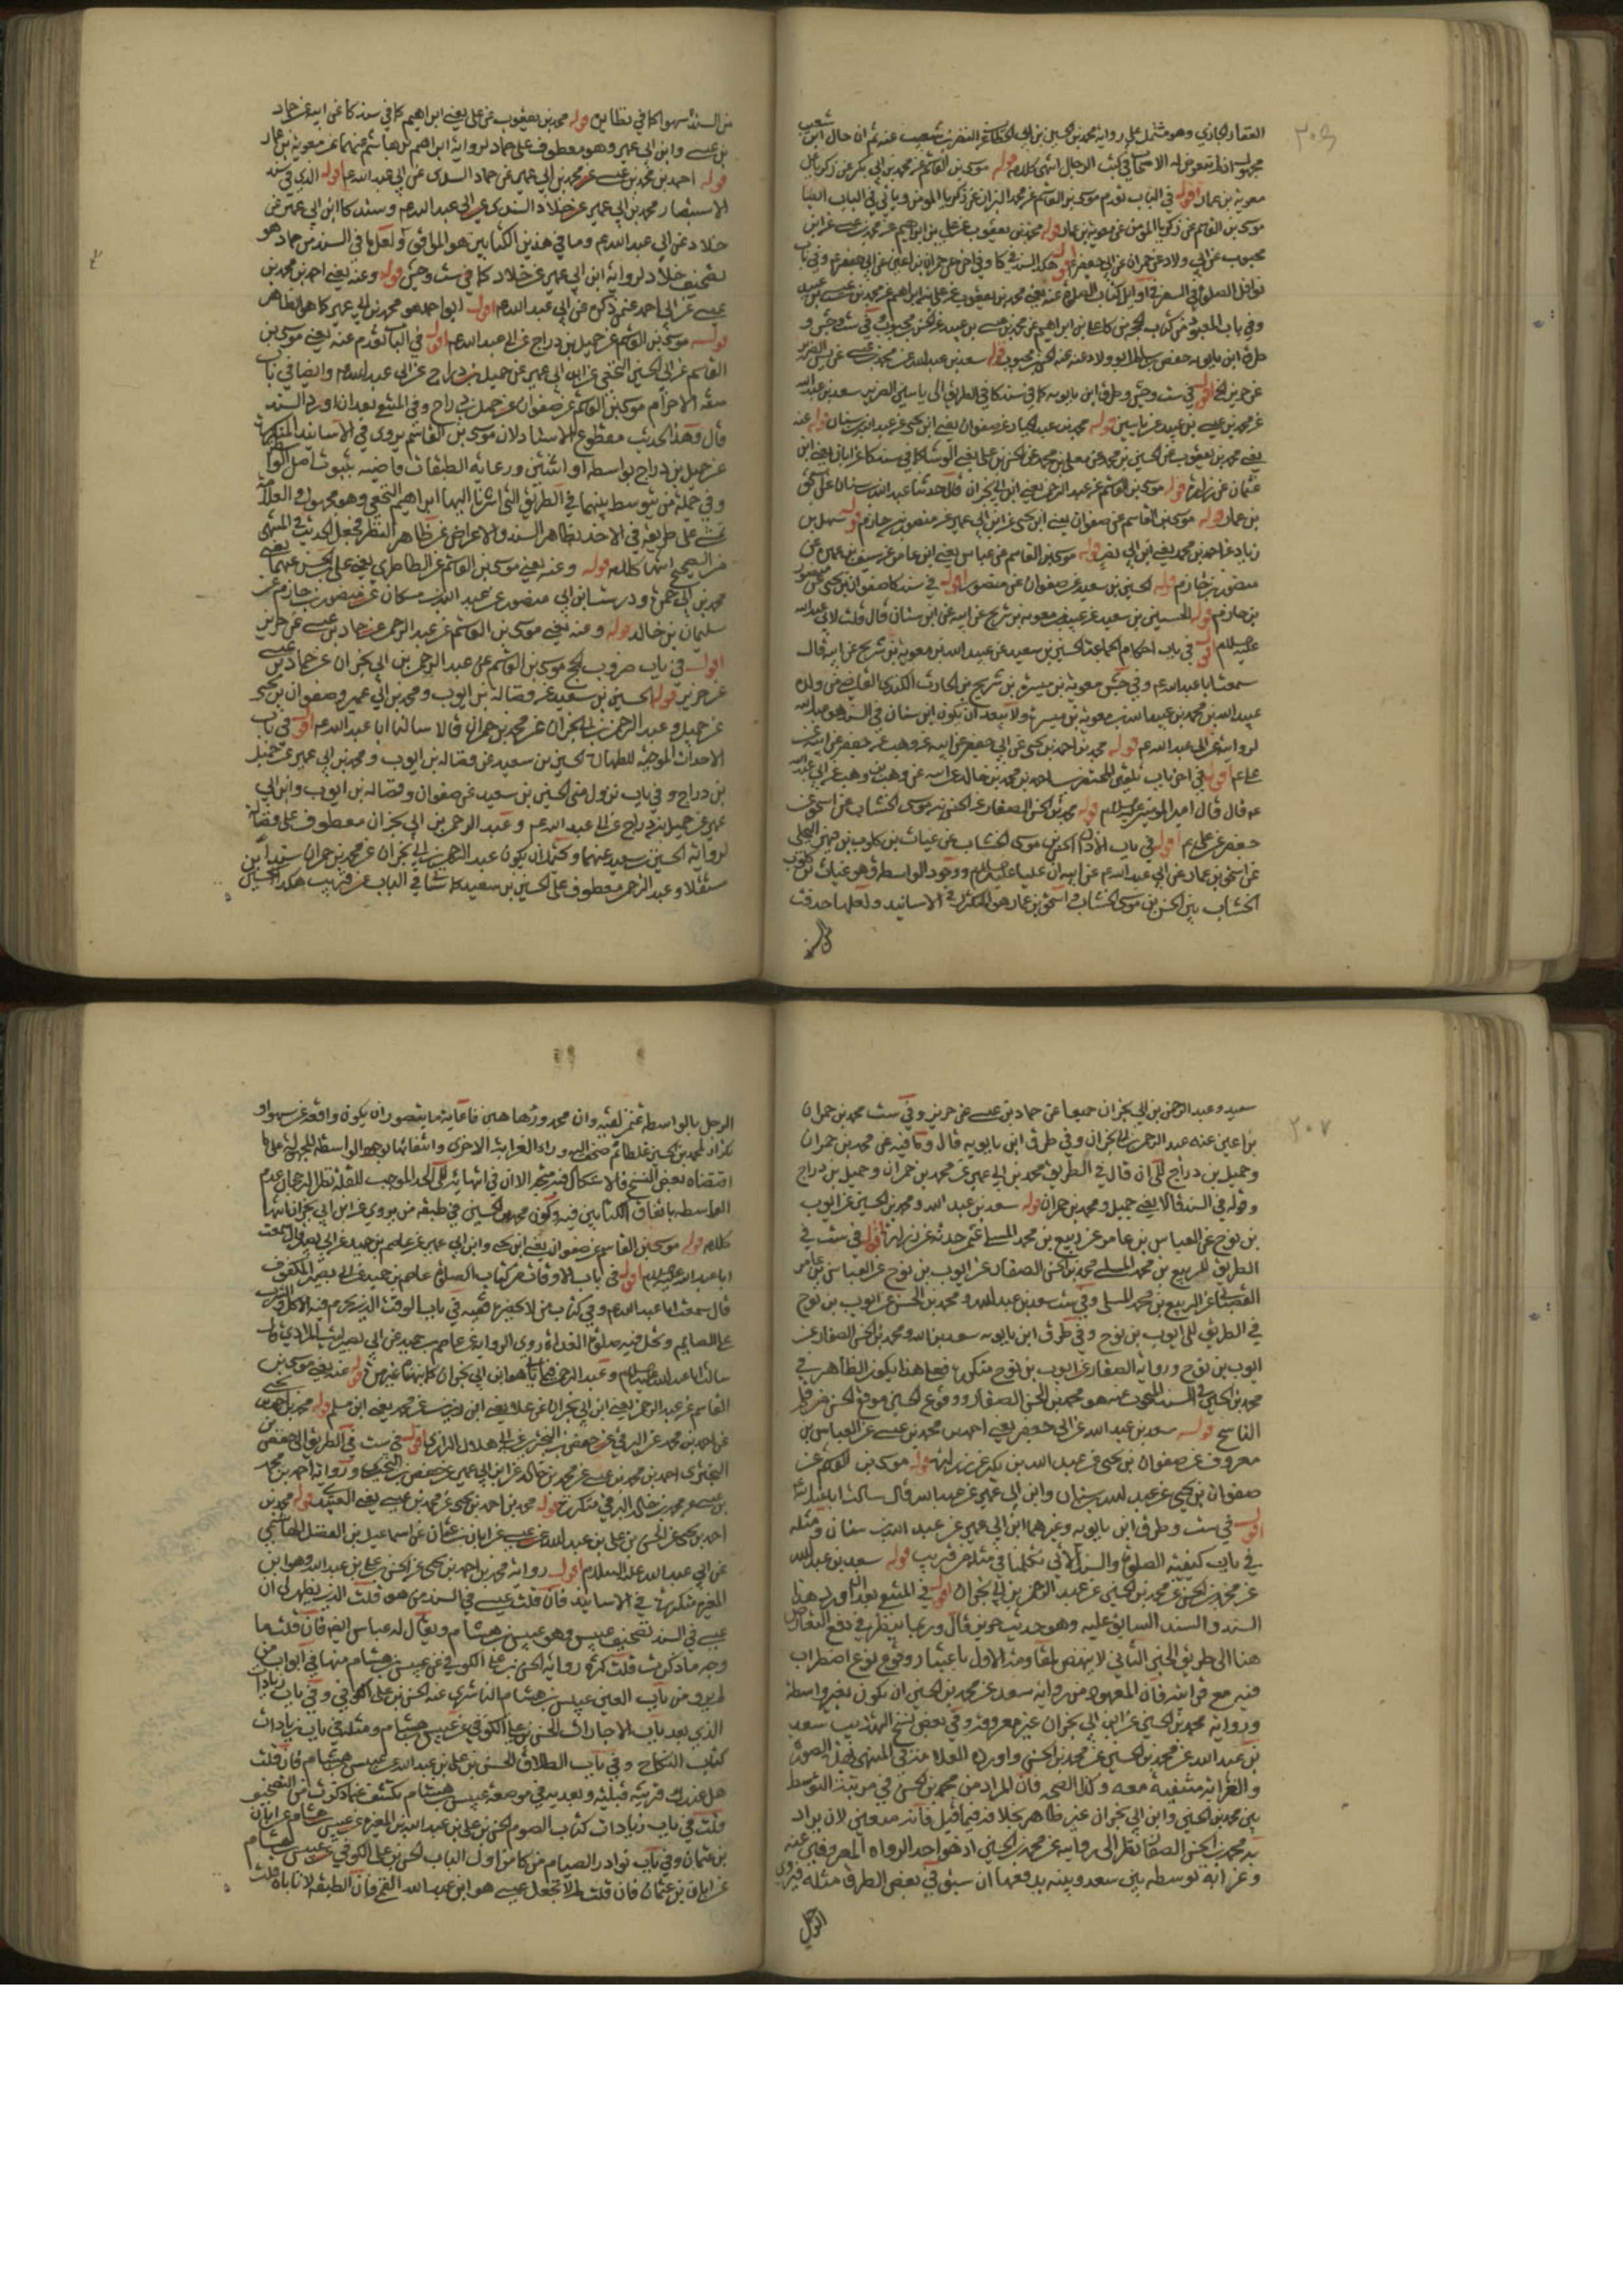 محمد بن الحسين بن ابي الخطاب عن النضر بن شعيب عنه ثم ان حال ابن شعيب
مجهول اذ لم تعرض له الاصحاب في كتب الرجال انتهى كلامه قوله موسى بن القاسم عن محمد بن ابي بكر عن زكريا عن
معوية بن عمار اقول في الباب تقدم موسى بن القاسم عن محمد البزاز عن زكريا المؤمن وياتي في الباب ايضا
موسى بن القاسم عن زكريا المؤمن عن معوية بن عمار قوله محمد بن يعقوب عن علي بن ابراهيم عن محمد بن عيسى عن ابن
محبوب عن ابي ولاد عن حمران عن ابي جعفر ع اقول هكذا السند في كا
نوافل الصلوة في السفر في اوايل كتاب الصلوة عنه يعني محمد بن يعقوب عن علي بن ابراهيم عن محمد بن عيسى بن عبيد
عن محمد بن عيسى بن عبيد عن ياسين قوله محمد بن عبد الجبار عن صفوان يعني ابن يحيى عن عبد الله بن سنان قوله عنه
يعني محمد بن يعقوب عن الحسين بن محمد عن معلى بن محمد عن الحسن بن علي يعني الوشا كما في سند كا عن ابان يعني ابن
عثمان عن زرارة قوله موسى بن القاسم عن عبد الرحمن يعني ابن ابي نجران قال حدثنا عبد الله بن سنان عن اسحق
بن عمار قوله موسى بن القاسم عن صفوان يعني ابن يحيى عن ابن ابي عمير عن منصور بن حازم قوله سهل بن
زياد عن احمد بن محمد يعني ابن ابي نصر قوله موسى بن القاسم عن عباس يعني ابن عامر عن سيف بن عميرة عن
منصور بن حازم قوله الحسين بن سعيد عن صفوان عن منصور اقول في سند كا صفوان بن يحيى عن منصور
بن حازم قوله الحسين بن سعيد عن عبيد بن معوية بن شريح عن ابيه عن ابن سنان قال قلت لابي عبد الله
عليه السلم اقول في باب احكام الجماعة الحسين بن سعيد عن عبيد الله بن معوية بن شريح عن ابيه قال
سمعت ابا عبد الله ع وفي جش معوية بن ميسرة بن شريح بن الحارث الكندي القاضي
عبيد الله بن محمد بن عبيد الله بن معوية بن ميسرة ولا يبعد ان يكون ابن سنان في السند هو عبد الله
لروايته عن ابي عبد الله ع قوله محمد بن احمد بن يحيى عن ابي جعفر عن ابيه عن وهب عن جعفر عن ابيه عن
علي ع اقول في اخر باب تلقين المحتضر احمد بن محمد بن خالد عن ابيه عن وهب بن وهب عن ابي عبد الله
ع قال قال امير المؤمنين عليه السلم قوله محمد بن الحسن الصفار عن الحسن بن موسى الخشاب عن اسحق عن
جعفر عن علي ع اقول في باب الاذان الحسن بن موسى الخشاب عن غياث بن كلوب بن فيهس البجلي
عن اسحق بن عمار عن ابي عبد الله ع عن ابيه ان عليا عليه السلم ووجود الواسطة وهو غياث بن كلوب
الخشاب بين الحسن بن موسى الخشاب واسحق بن عمار هو المتكرر في الاسانيد ولعلها حذفت
من السند سهوا كما في نظايره قوله محمد بن يعقوب عن علي يعني ابن ابراهيم كما في سند كا عن ابيه عن حماد
بن عيسى وابن ابي عمير وهو معطوف على حماد لرواية ابراهيم بن هاشم عنهما عن معوية بن عمار
قوله احمد بن محمد بن عيسى عن محمد بن ابي عمير عن حماد السدى عن ابي عبد الله ع اقول الذي في سند
الاستبصار محمد بن ابي عمير عن خلاد السدى عن ابي عبد الله ع وسند كا ابن ابي عمير عن
خلاد عن ابي عبد الله ع وما في هذين الكتابين هو الموافق ولعل ما في السند من حماد هو
تصحيف خلاد لرواية ابن ابي عمير عن خلاد كما في ست وجش قوله وعنه يعني احمد بن محمد بن
عيسى عن ابي احمد عمن ذكره عن ابي عبد الله ع اقول ابو احمد هو محمد بن ابي عمير كما هو الظاهر
قوله موسى بن القاسم عن جميل بن دراج عن ابي عبد الله ع اقول في الباب تقدم عنه يعني موسى بن
القاسم عن ابي الحسين النخعي عن ابن ابي عمير عن جميل بن دراج عن ابي عبد الله ع وايضا في باب
صفة الاحرام موسى بن القاسم عن صفوان عن جميل بن دراج وفي المنتقى بعد ان اورد السند
قال وهذا الحديث مقطوع الاسناد لان موسى بن القاسم يروي في الاسانيد المتكررة
عن جميل بن دراج بواسطة او اثنتين ورعاية الطبقات قاضية بثبوت اصل الواسطة
وفي جملة من يتوسط بينهما في الطريق التي اشرنا اليها ابراهيم النخعي وهو مجهول والعلامة
مشى على طريقته في الاخذ بظاهر السند والاعراض عن ظاهر النظر فجعل الحديث في المنتهى
من الصحيح انتهى كلامه قوله وعنه يعني موسى بن القاسم عن الطاطري يعني علي بن الحسن عنهما يعني
محمد بن ابي حمزة ودرست ابن ابي منصور عن عبد الله بن مسكان عن منصور بن حازم عن
سليمان بن خالد قوله وعنه يعني موسى بن القاسم عن عبد الرحمن عن حماد بن عيسى عن حريز
اقول في باب ضروب الحج موسى بن القاسم عن عبد الرحمن بن ابي نجران عن حماد بن عيسى
عن حريز قوله الحسين بن سعيد عن فضالة بن ايوب ومحمد بن ابي عمير وصفوان بن يحيى
عن جميل وعبد الرحمن بن ابي نجران عن محمد بن حمران قالا سالنا ابا عبد الله ع اقول في باب
الاحداث الموجبة للطهارة الحسين بن سعيد عن فضالة بن ايوب ومحمد بن ابي عمير عن جميل
بن دراج وفي باب نزول منى الحسين بن سعيد عن صفوان وفضالة بن ايوب وابن ابي
عمير عن جميل بن دراج عن ابي عبد الله ع وعبد الرحمن بن ابي نجران معطوف على فضالة
لرواية الحسين بن سعيد عنهما ويحتمل ان يكون عبد الرحمن بن ابي نجران عن محمد بن حمران سندا
مستقلا وعبد الرحمن معطوف على الحسين بن سعيد كما سياتي في الباب عن قريب هكذا الحسين بن
سعيد وعبد الرحمن بن ابي نجران جميعا عن حماد بن عيسى عن حريز وفي ست محمد بن حمران
بن اعين عنه عبد الرحمن بن ابي نجران وفي طرق ابن بابويه قال وما فيه عن محمد بن حمران
وجميل بن دراج الى ان قال في الطريق محمد بن ابي عمير عن محمد بن حمران وجميل بن دراج
وقوله في السند قالا يعني جميل ومحمد بن حمران قوله سعد بن عبد الله ومحمد بن الحسين عن ايوب
بن نوح عن العباس بن عامر عن ربيع بن محمد المسلي عمن حدثه عن زرارة اقول في ست في
الطريق للربيع بن محمد المسلي محمد بن الحسن الصفار عن ايوب بن نوح عن العباس بن عامر
القصباني عن الربيع بن محمد المسلي وفي ست سعد بن عبد الله ومحمد بن الحسن عن ايوب بن نوح
في الطريق الى ايوب بن نوح وفي طرق ابن بابويه سعد بن عبد الله ومحمد بن الحسن الصفار عن
ايوب بن نوح ورواية الصفار عن ايوب بن نوح متكررة فعلى هذا يكون الظاهر في
محمد بن الحسين في السند المبحوث عنه هو محمد بن الحسن الصفار ووقوع الحسين موقع الحسن من قلم
الناسخ قوله سعد بن عبد الله عن ابي جعفر يعني احمد بن محمد بن عيسى عن العباس بن
معروف عن صفوان بن يحيى عن عبد الله بن بكير عن زرارة قوله موسى بن القاسم عن
صفوان بن يحيى عن عبد الله بن سنان وابن ابي عمير عن عبد الله قال سالت ابا عبد الله ع
اقول في ست وطرق ابن بابويه وغيرهما ابن ابي عمير عن عبد الله بن سنان ومثله
في باب كيفية الصلوة والسند الاتي تكلمنا في مثله عن قريب قوله سعد بن عبد الله
عن محمد بن الحسن عن محمد بن الحسين عن عبد الرحمن بن ابي نجران اقول في المنتقى بعد ان اورد هذا
السند والسند السابق عليه وهو حديث حريز قال وربما ينظر في دفع التعارض
هنا الى طريق الخبر الثاني لا ينهض لمقاومة الاول باعتبار وقوع نوع اضطراب
فيه مع غرابته فان المعهود من رواية سعد عن محمد بن الحسين ان يكون بغير واسطة
ورواية محمد بن الحسين عن ابن ابي نجران غير معروفة وفي بعض نسخ التهذيب سعد
بن عبد الله عن محمد بن الحسين عن محمد بن الحسن واورده العلامة في المنتهى بهذه الصورة
والغرابة منتفية معه وكذا الصحة فان المراد من محمد بن الحسن في مرتبة التوسط
بين محمد بن الحسين وابن ابي نجران غير ظاهر بخلافه فيما قبل فانه مدفوع لان يراد
به محمد بن الحسن الصفار نظرا الى روايته عن محمد بن الحسين اذ هو احد الرواة المعروفين عنه
وغرابة توسطه بين سعد وبينه يدفعها ان سبق في بعض الطرق مثله
الرجل
الرجل بالواسطة عمن لقيه وان محذورها هين فاغاية ما يتصور ان يكون واقعة عن سهو او
تكرار لمحمد بن الحسين غلطا
اقتضاه بعض النسخ فلا اشكال فيه
الواسطة باتفاق الكتابين فيه وكون محمد بن الحسين في طبقة من يروي عن ابن ابي نجران انتهى
كلامه قوله موسى بن القاسم عن صفوان يعني ابن يحيى وابن ابي عمير عن عاصم بن حميد عن ابي بصير قال سمعت
ابا عبد الله عليه السلم اقول في باب الاوقات من كتاب الصلوة عاصم بن حميد عن ابي بصير المكفوف
قال سمعت ابا عبد الله ع وفي كتاب من لا يحضره الفقيه في باب الوقت الذي يحرم فيه الاكل والشرب
على الصايم وتحل فيه صلوة الغداة روى الرواية عن عاصم بن حميد عن ابي بصير ليث المرادي قال
سالت ابا عبد الله عليه السلم وعبد الرحمن
القاسم عن عبد الرحمن يعني ابن ابي نجران عن علا يعني ابن رزين عن محمد يعني ابن مسلم قوله محمد بن احمد بن يحيى
عن احمد بن محمد عن البرقي عن جعفر بن البختري عن ابي هلال الرازي اقول في ست في الطريق الى حفص بن
البختري احمد بن محمد بن عيسى عن محمد بن خالد عن ابن ابي عمير عن حفص بن البختري ورواية احمد بن محمد
بن عيسى عن محمد بن خالد البرقي متكررة قوله محمد بن احمد بن يحيى عن محمد بن عيسى يعني العبيد قوله محمد بن
احمد بن يحيى عن الحسن بن علي بن عبد الله عن عيسى عن ابان بن عثمان عن اسماعيل بن الفضل الهاشمي
عن ابي عبد الله عليه السلام اقول رواية محمد بن احمد بن يحيى عن الحسن بن علي بن عبد الله وهو ابن
المغيرة متكررة في الاسانيد فان قلت عيسى في السند من هو قلت الذي يظهر لي ان
عيسى في السند تصحيف عبيس وهو عبيس بن هشام ويقال له عباس ايضا فان قلت ما
وجه ما ذكرت قلت كثرة رواية الحسن بن علي الكوفي عن عبيس بن هشام منها في ابواب من
الذي بعد باب الاجارات الحسن بن علي الكوفي عن عبيس بن هشام ومثله في باب زيادات
كتاب النكاح وفي باب الطلاق الحسن بن علي بن عبد الله عن عبيس بن هشام فان قلت
هل عندك قرينة قبلية وبعدية في موضعه عبيس بن هشام تكشف عما ذكرت من التصحيف
قلت في باب زيادات كتاب الصوم الحسن بن علي بن عبد الله بن المغيرة عن عبيس بن هشام عن ابان
بن عثمان وفي باب نوادر الصيام من كا من اول الباب الحسن بن علي الكوفي عن عبيس بن هشام
عن ابان بن عثمان فان قلت هلا تجعل عيسى هو ابن عبد الله القمي فان الطبقة لا تاباه قلت